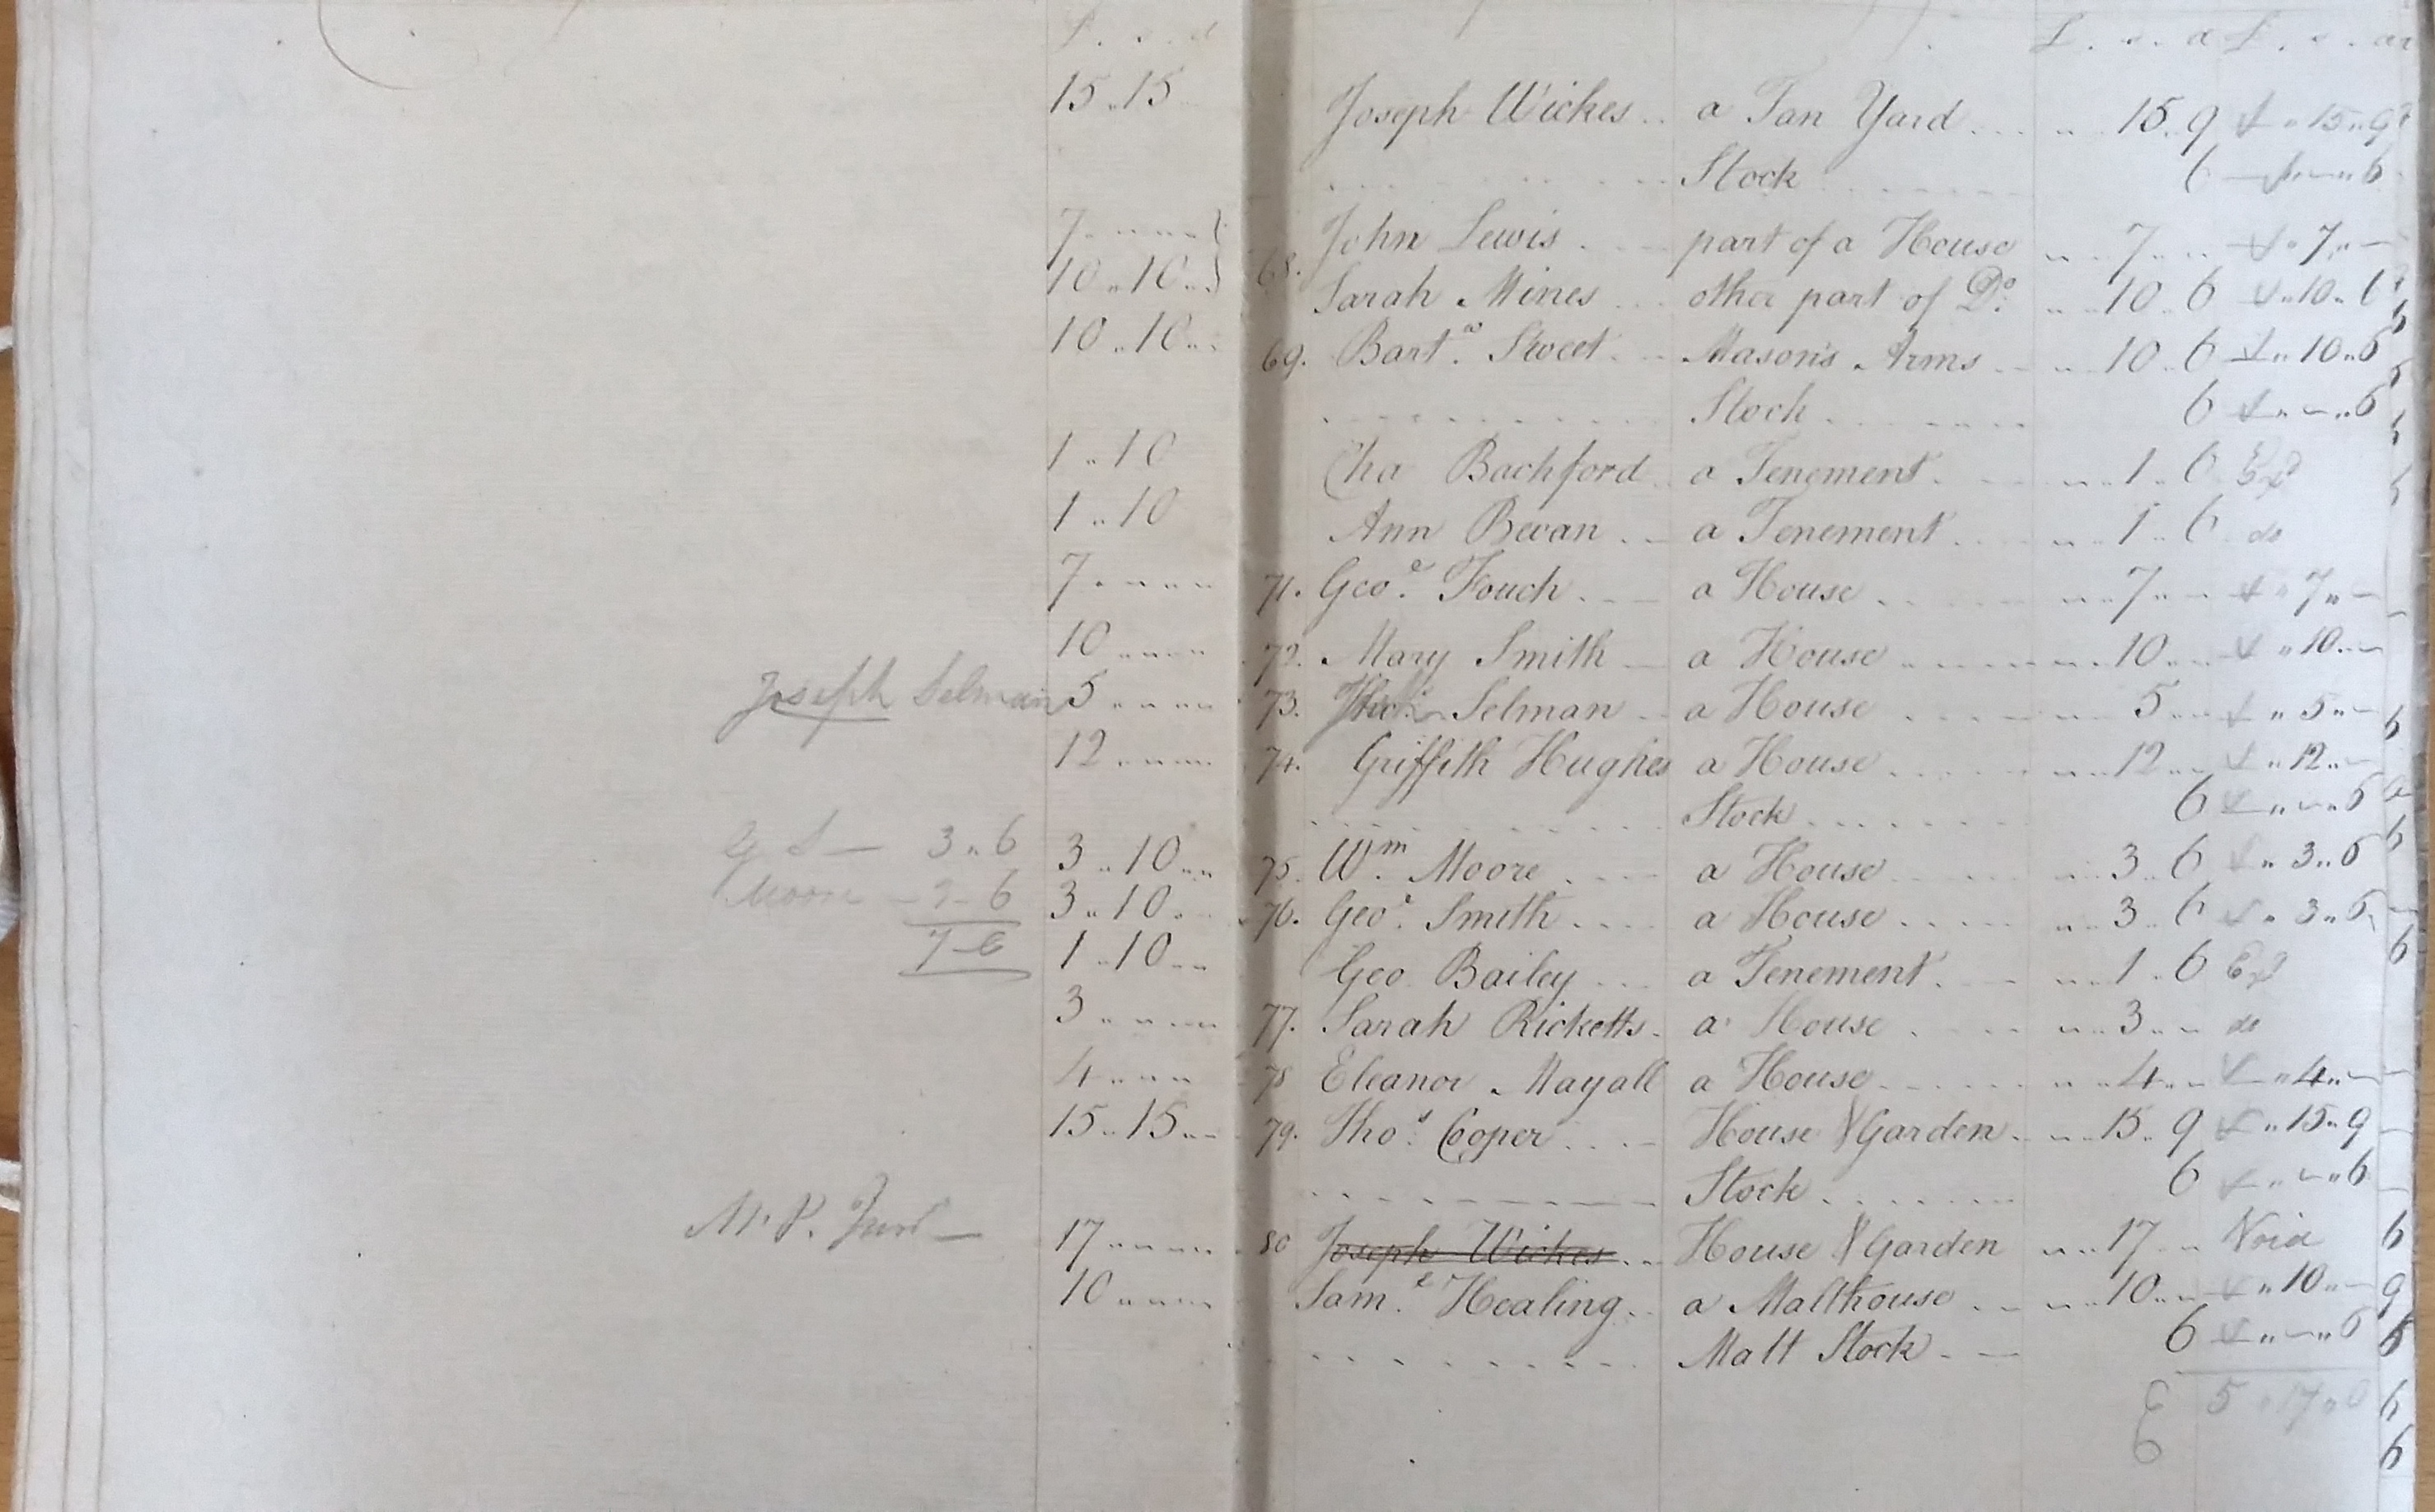 £ . s . d £ . s . d £ . s . d
15 .. 15 Joseph Wickes .. a Tan Yard .. 15 .. 9 .. 15 .. 9
Stock 6 .. 6
7 John Lewis . part of a House .. 7 .. 7 ..
10 .. 10 68. Sarah Mines other part of Do. .. 10 .. 6 .. 10 .. 6
10 .. 10 69. Bartw. Sweet Mason's Arms .. 10 .. 6 .. 10 .. 6
Stock 6 .. 6
1 .. 10 Cha Bachford a Tenement .. 1 .. 6 Exd
1 .. 10 Ann Bevan a Tenement .. 1 .. 6 do
7 71. Geoe. Fouch a House .. 7 .. 7 ..
10 72. Mary Smith a House .. 10 .. 10 ..
Joseph Selman 5 73. Selman a House 5 .. 5 ..
12 74. Griffith Hughes a House .. 12 .. 12 ..
Stock 6 .. 6
G S — 3 .. 6 3 .. 10 75. Wm. Moore a House .. 3 .. 6 .. 3 .. 6
Moore — 3 - 6 3 .. 10 76. Geoe. Smith a House .. 3 .. 6 .. 3 .. 6
7 - 6 1 .. 10 Geo Bailey a Tenement .. 1 .. 6 Exd
3 77. Sarah Ricketts a House .. 3 .. do
4 78 Eleanor Mayall a House .. 4 .. 4 ..
15 .. 15 79. Thos. Cooper House & Garden .. 15 .. 9 .. 15 .. 9
Stock 6 .. 6
17 80 Joseph Wickes .. House & Garden .. 17 .. Void
10 Saml. Healing .. a Malthouse .. 10 .. 10 ..
Malt Stock 6 .. 6
5 .. 17 .. 0
6